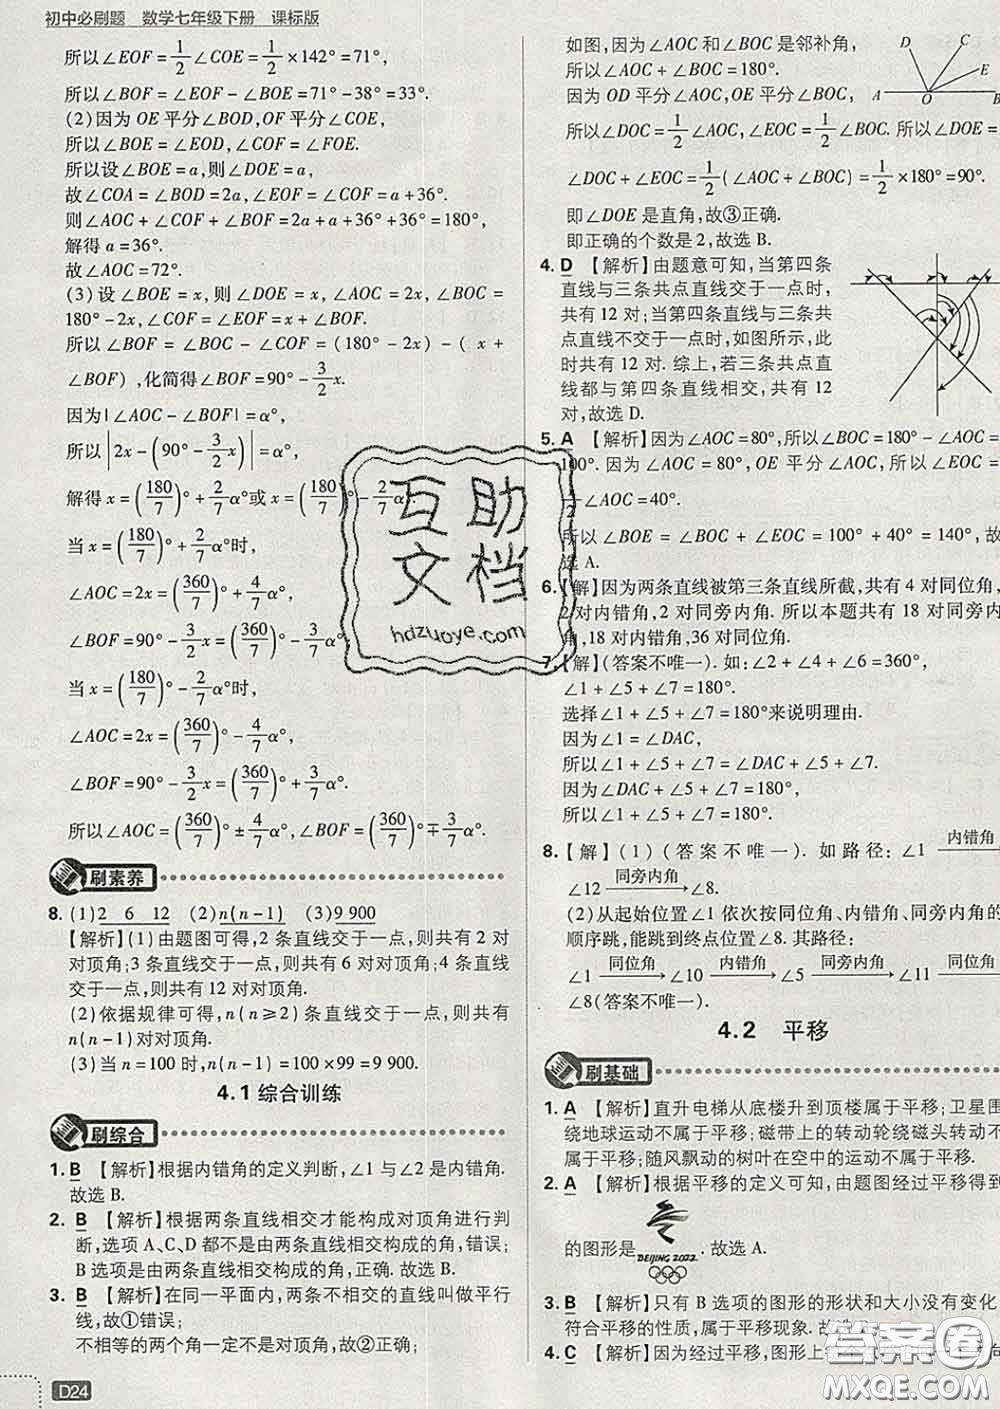 初中必刷题 数学七年级下册 课标版
所以∠EOF=1/2∠COE=1/2×142°=71°,
所以∠BOF=∠EOF-∠BOE=71°-38°=33°.
(2)因为OE平分∠BOD,OF平分∠COE,
所以∠BOE=∠EOD,∠COF=∠FOE.
所以设∠BOE=a,则∠DOE=a,
故∠COA=∠BOD=2a,∠EOF=∠COF=a+36°.
则∠AOC+∠COF+∠BOF=2a+a+36°+36°=180°,
解得a=36°.
故∠AOC=72°.
(3)设∠BOE=x,则∠DOE=x,∠AOC=2x,∠BOC=
180°-2x,∠COF=∠EOF=x+∠BOF.
所以∠BOF=∠BOC-∠COF=(180°-2x)-(x+
∠BOF),化简得∠BOF=90°-3/2x.
因为|∠AOC-∠BOF|=α°,
所以|2x-(90°-3/2x)|=α°,
解得x=(180/7)°+2/7α°或x=(180/7)°-2/7α°.
当x=(180/7)°+2/7α°时,
∠AOC=2x=(360/7)°+4/7α°,
∠BOF=90°-3/2x=(360/7)°-3/7α°;
当x=(180/7)°-2/7α°时,
∠AOC=2x=(360/7)°-4/7α°,
∠BOF=90°-3/2x=(360/7)°+3/7α°.
所以∠AOC=(360/7)°±4/7α°,∠BOF=(360/7)°∓3/7α°.
刷素养
8. (1)2 6 12 (2)n(n-1) (3)9 900
【解析】(1)由题图可得,2条直线交于一点,则共有2对
对顶角;3条直线交于一点,则共有6对对顶角;4条直线
交于一点,则共有12对对顶角.
(2)依据规律可得,n(n≥2)条直线交于一点,则共有
n(n-1)对对顶角.
(3)当n=100时,n(n-1)=100×99=9 900.
4.1 综合训练
刷综合
1. B 【解析】根据内错角的定义判断,∠1与∠2是内错角.
故选B.
2. B 【解析】根据两条直线相交才能构成对顶角进行判
断,选项A、C、D都不是由两条直线相交构成的角,错误;
B选项是由两条直线相交构成的角,正确.故选B.
3. B 【解析】在同一平面内,两条不相交的直线叫做平行
线,故①错误;
不相等的两个角一定不是对顶角,故②正确;
D24
如图,因为∠AOC和∠BOC是邻补角,
所以∠AOC+∠BOC=180°.
因为OD平分∠AOC,OE平分∠BOC,
D C E A O B
所以∠DOC=1/2∠AOC,∠EOC=1/2∠BOC.所以∠DOE=
∠DOC+∠EOC=1/2(∠AOC+∠BOC)=1/2×180°=90°.
即∠DOE是直角,故③正确.
即正确的个数是2,故选B.
4. D 【解析】由题意可知,当第四条
直线与三条共点直线交于一点时,
共有12对;当第四条直线与三条共
点直线不交于一点时,如图所示,此
时共有12对.综上,若三条共点直
线都与第四条直线相交,共有12
对,故选D.
5. A 【解析】因为∠AOC=80°,所以∠BOC=180°-∠AOC=
100°.因为∠AOC=80°,OE平分∠AOC,所以∠EOC=
1/2∠AOC=40°.
所以∠BOE=∠BOC+∠EOC=100°+40°=140°,故
选A.
6.【解】因为两条直线被第三条直线所截,共有4对同位角,
2对内错角,2对同旁内角.所以本题共有18对同旁内
角,18对内错角,36对同位角.
7.【解】(答案不唯一).如:∠2+∠4+∠6=360°,
∠1+∠5+∠7=180°.
选择∠1+∠5+∠7=180°来说明理由.
因为∠1=∠DAC,
所以∠1+∠5+∠7=∠DAC+∠5+∠7.
因为∠DAC+∠5+∠7=180°,
所以∠1+∠5+∠7=180°.
8.【解】(1)(答案不唯一).如路径:∠1 内错角
∠12 同旁内角 ∠8.
(2)从起始位置∠1依次按同位角、内错角、同旁内角的
顺序跳,能跳到终点位置∠8.其路径:
∠1 同位角 ∠10 内错角 ∠5 同旁内角 ∠11 同位角
∠8(答案不唯一).
4.2 平移
刷基础
1. A 【解析】直升电梯从底楼升到顶楼属于平移;卫星围
绕地球运动不属于平移;磁带上的转动轮绕磁头转动不
属于平移;随风飘动的树叶在空中的运动不属于平移.
2. A 【解析】根据平移的定义可知,由题图经过平移得到
的图形是 BEIJING 2022 .故选A.
3. B 【解析】只有B选项的图形的形状和大小没有变化,
符合平移的性质,属于平移现象.故选B.
4. C 【解析】因为经过平移,图形上
互助文档
hdzuoye.com
答案圈
MXQE.COM